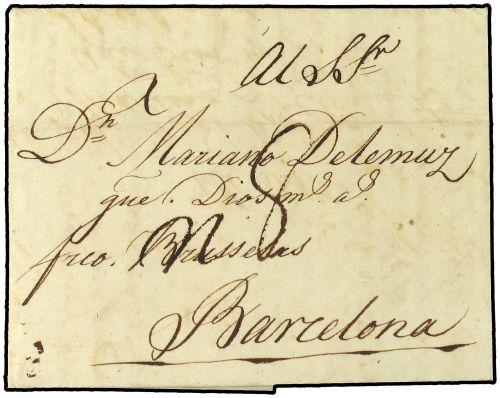 Al SSr
Dn Mariano Delemuz
gue. Dios ms. as.
frco. Brusselas
Barcelona